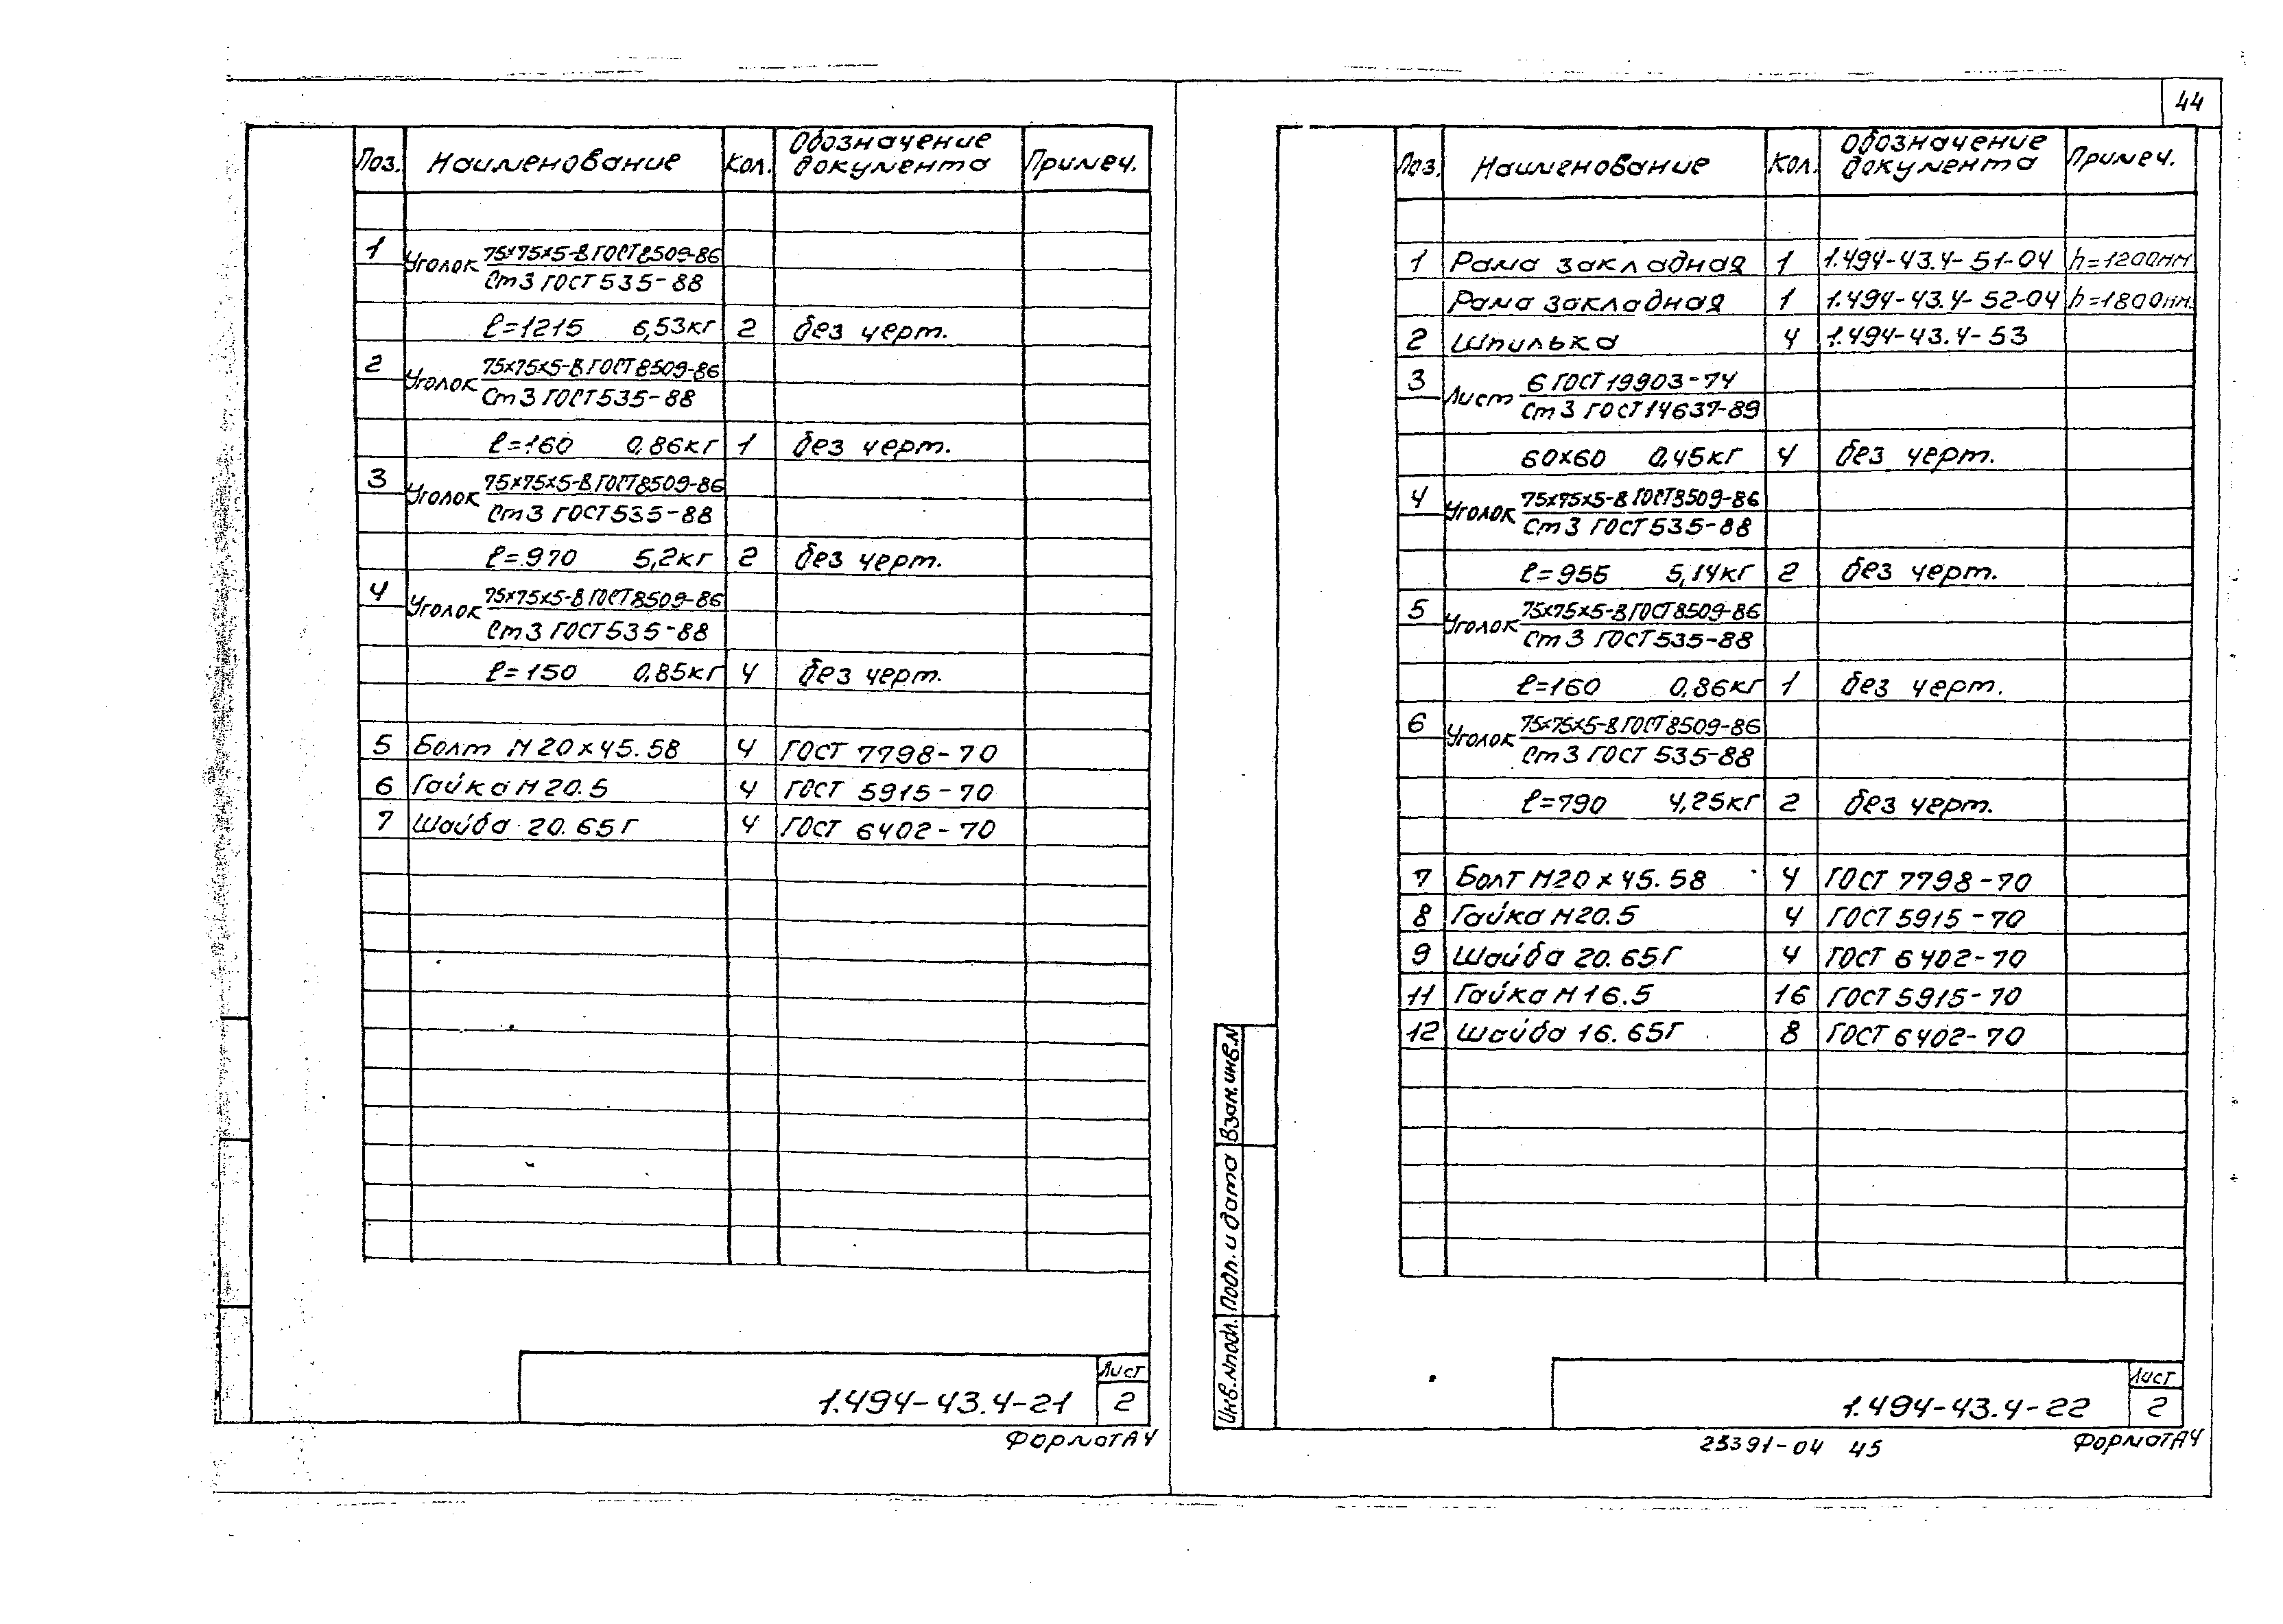 44
Поз. Наименование Кол. Обозначение документа Примеч.
1 Уголок 75х75х5-В ГОСТ 8509-86
Ст3 ГОСТ 535-88
ℓ=1215 6,53кг 2 без черт.
2 Уголок 75х75х5-В ГОСТ 8509-86
Ст3 ГОСТ 535-88
ℓ=160 0,86кг 1 без черт.
3 Уголок 75х75х5-В ГОСТ 8509-86
Ст3 ГОСТ 535-88
ℓ=970 5,2кг 2 без черт.
4 Уголок 75х75х5-В ГОСТ 8509-86
Ст3 ГОСТ 535-88
ℓ=150 0,85кг 4 без черт.
5 Болт М20х45.58 4 ГОСТ 7798-70
6 Гайка М20.5 4 ГОСТ 5915-70
7 Шайба 20.65Г 4 ГОСТ 6402-70
1.494-43.4-21
Лист
2
Формат А4
Поз. Наименование Кол. Обозначение документа Примеч.
1 Рама закладная 1 1.494-43.4-51-04 h=1200мм
Рама закладная 1 1.494-43.4-52-04 h=1800мм
2 Шпилька 4 1.494-43.4-53
3 Лист 6 ГОСТ 19903-74
Ст3 ГОСТ 14637-89
60х60 0,45кг 4 без черт.
4 Уголок 75х75х5-В ГОСТ 8509-86
Ст3 ГОСТ 535-88
ℓ=955 5,14кг 2 без черт.
5 Уголок 75х75х5-В ГОСТ 8509-86
Ст3 ГОСТ 535-88
ℓ=160 0,86кг 1 без черт.
6 Уголок 75х75х5-В ГОСТ 8509-86
Ст3 ГОСТ 535-88
ℓ=790 4,25кг 2 без черт.
7 Болт М20х45.58 4 ГОСТ 7798-70
8 Гайка М20.5 4 ГОСТ 5915-70
9 Шайба 20.65Г 4 ГОСТ 6402-70
11 Гайка М16.5 16 ГОСТ 5915-70
12 Шайба 16.65Г 8 ГОСТ 6402-70
Взам.инв.N
Подп. и дата
Инв.Nподл.
1.494-43.4-22
Лист
2
23391-04 45
Формат А4